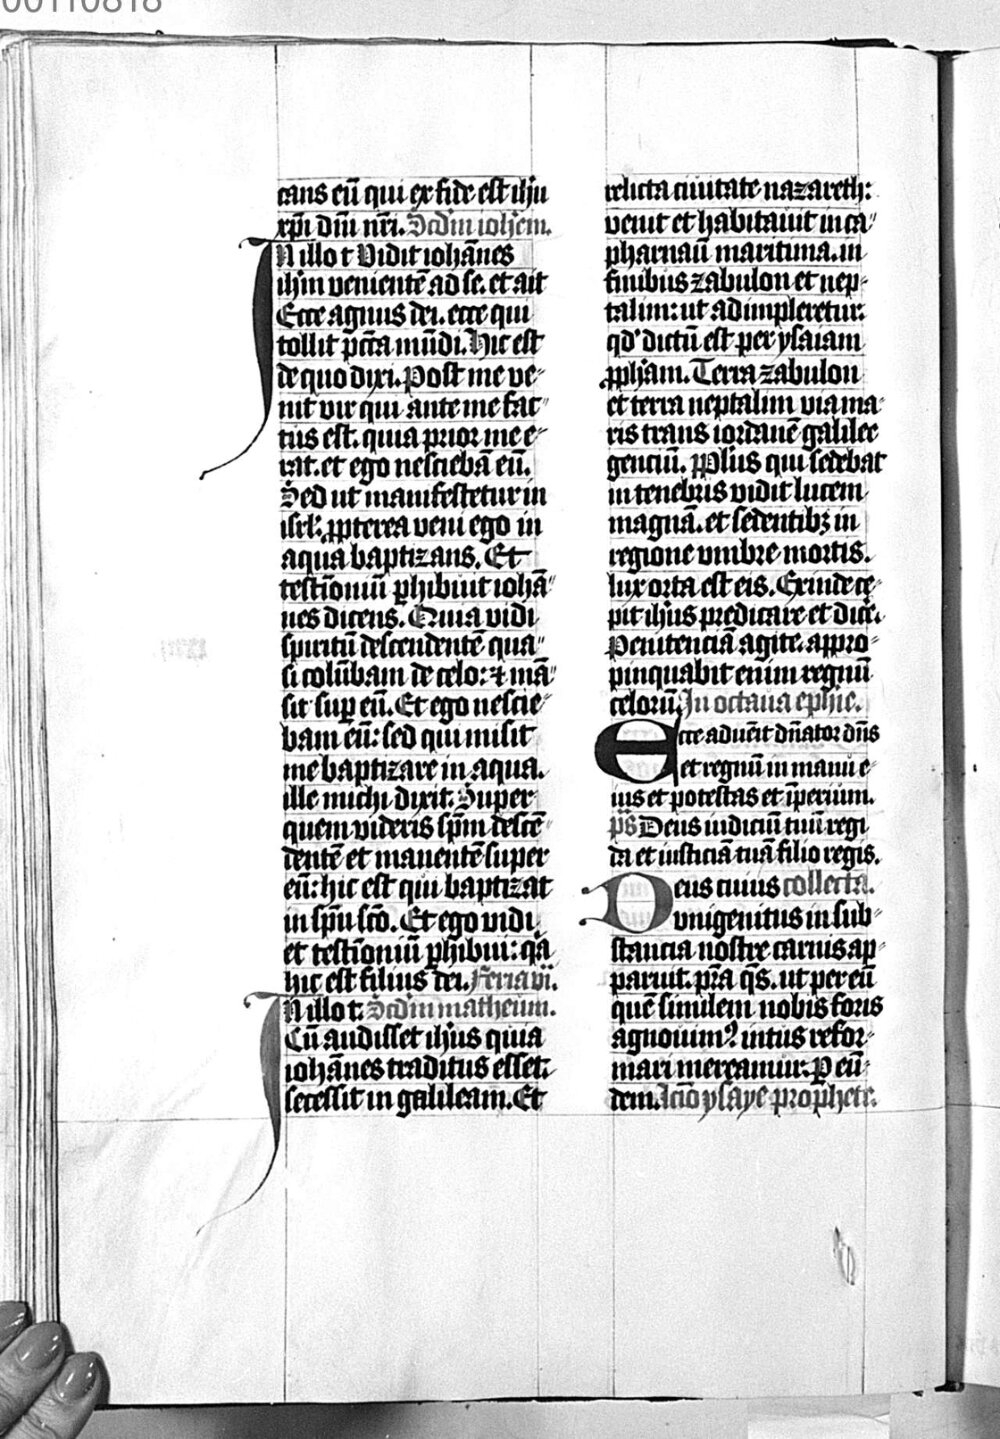 00110818
cans eū qui ex fide est ihū
xp̄i dn̄i nr̄i. Scd̄m ioh̄em.
In illo t Vidit ioh̄anes
ih̄m venientē ad se. et ait
Ecce agnus dei. ecce qui
tollit pctā mūdi. Hic est
de quo dixi. Post me ve-
nit vir qui ante me fac-
tus est. quia prior me e-
rat. et ego nesciebā eū.
Sed ut manifestetur in
isrl̄. ꝓpterea veni ego in
aqua baptizans. Et
testi̅oniū phibuit iohā-
nes dicens. Quia vidi
spiritū descendentē qua-
si colūbam de celo: ⁊ mā-
sit suꝑ eū. Et ego nescie-
bam eū: sed qui misit
me baptizare in aqua.
ille michi dixit. Super
quem videris sp̄m descē-
dentē et manentē super
eū: hic est qui baptizat
in sp̄u scō. Et ego vidi
et testi̅oniū phibui: qā
hic est filius dei. Feria vi.
In illo t: Scd̄m matheum.
Cū audisset ih̄us quia
ioh̄anes traditus esset:
secessit in galileam. Et
relicta ciuitate nazareth:
venit et habitauit in ca-
pharnaū maritima. in
finibus zabulon et nep-
talim: ut adimpleretur
qd' dictū est per ysaiam
ꝓph̄am. Terra zabulon
et terra neptalim via ma-
ris trans iordanē galilee
genciū. Pplūs qui sedebat
in tenebris vidit lucem
magnā. et sedentibꝫ in
regione vmbre mortis.
lux orta est eis. Exinde ce-
pit ih̄us predicare et dicē.
Penitenciā agite. appro-
pinquabit enim regnū
celorū. In octaua ephie.
Ecce aduēit dn̄ator dn̄s
et regnū in manu e-
ius et potestas et īperium.
ps̄ Deus iudiciū tuū regi
da et iusticiā tuā filio regis.
Deus cuius collecta.
vnigenitus in sub-
stancia nostre carnis ap-
paruit. pr̄a qs̄. ut per eū
quē similem nobis foris
agnouim⁹ intus refor-
mari mereamur. P eū-
dem. lcio ysaye prophete.